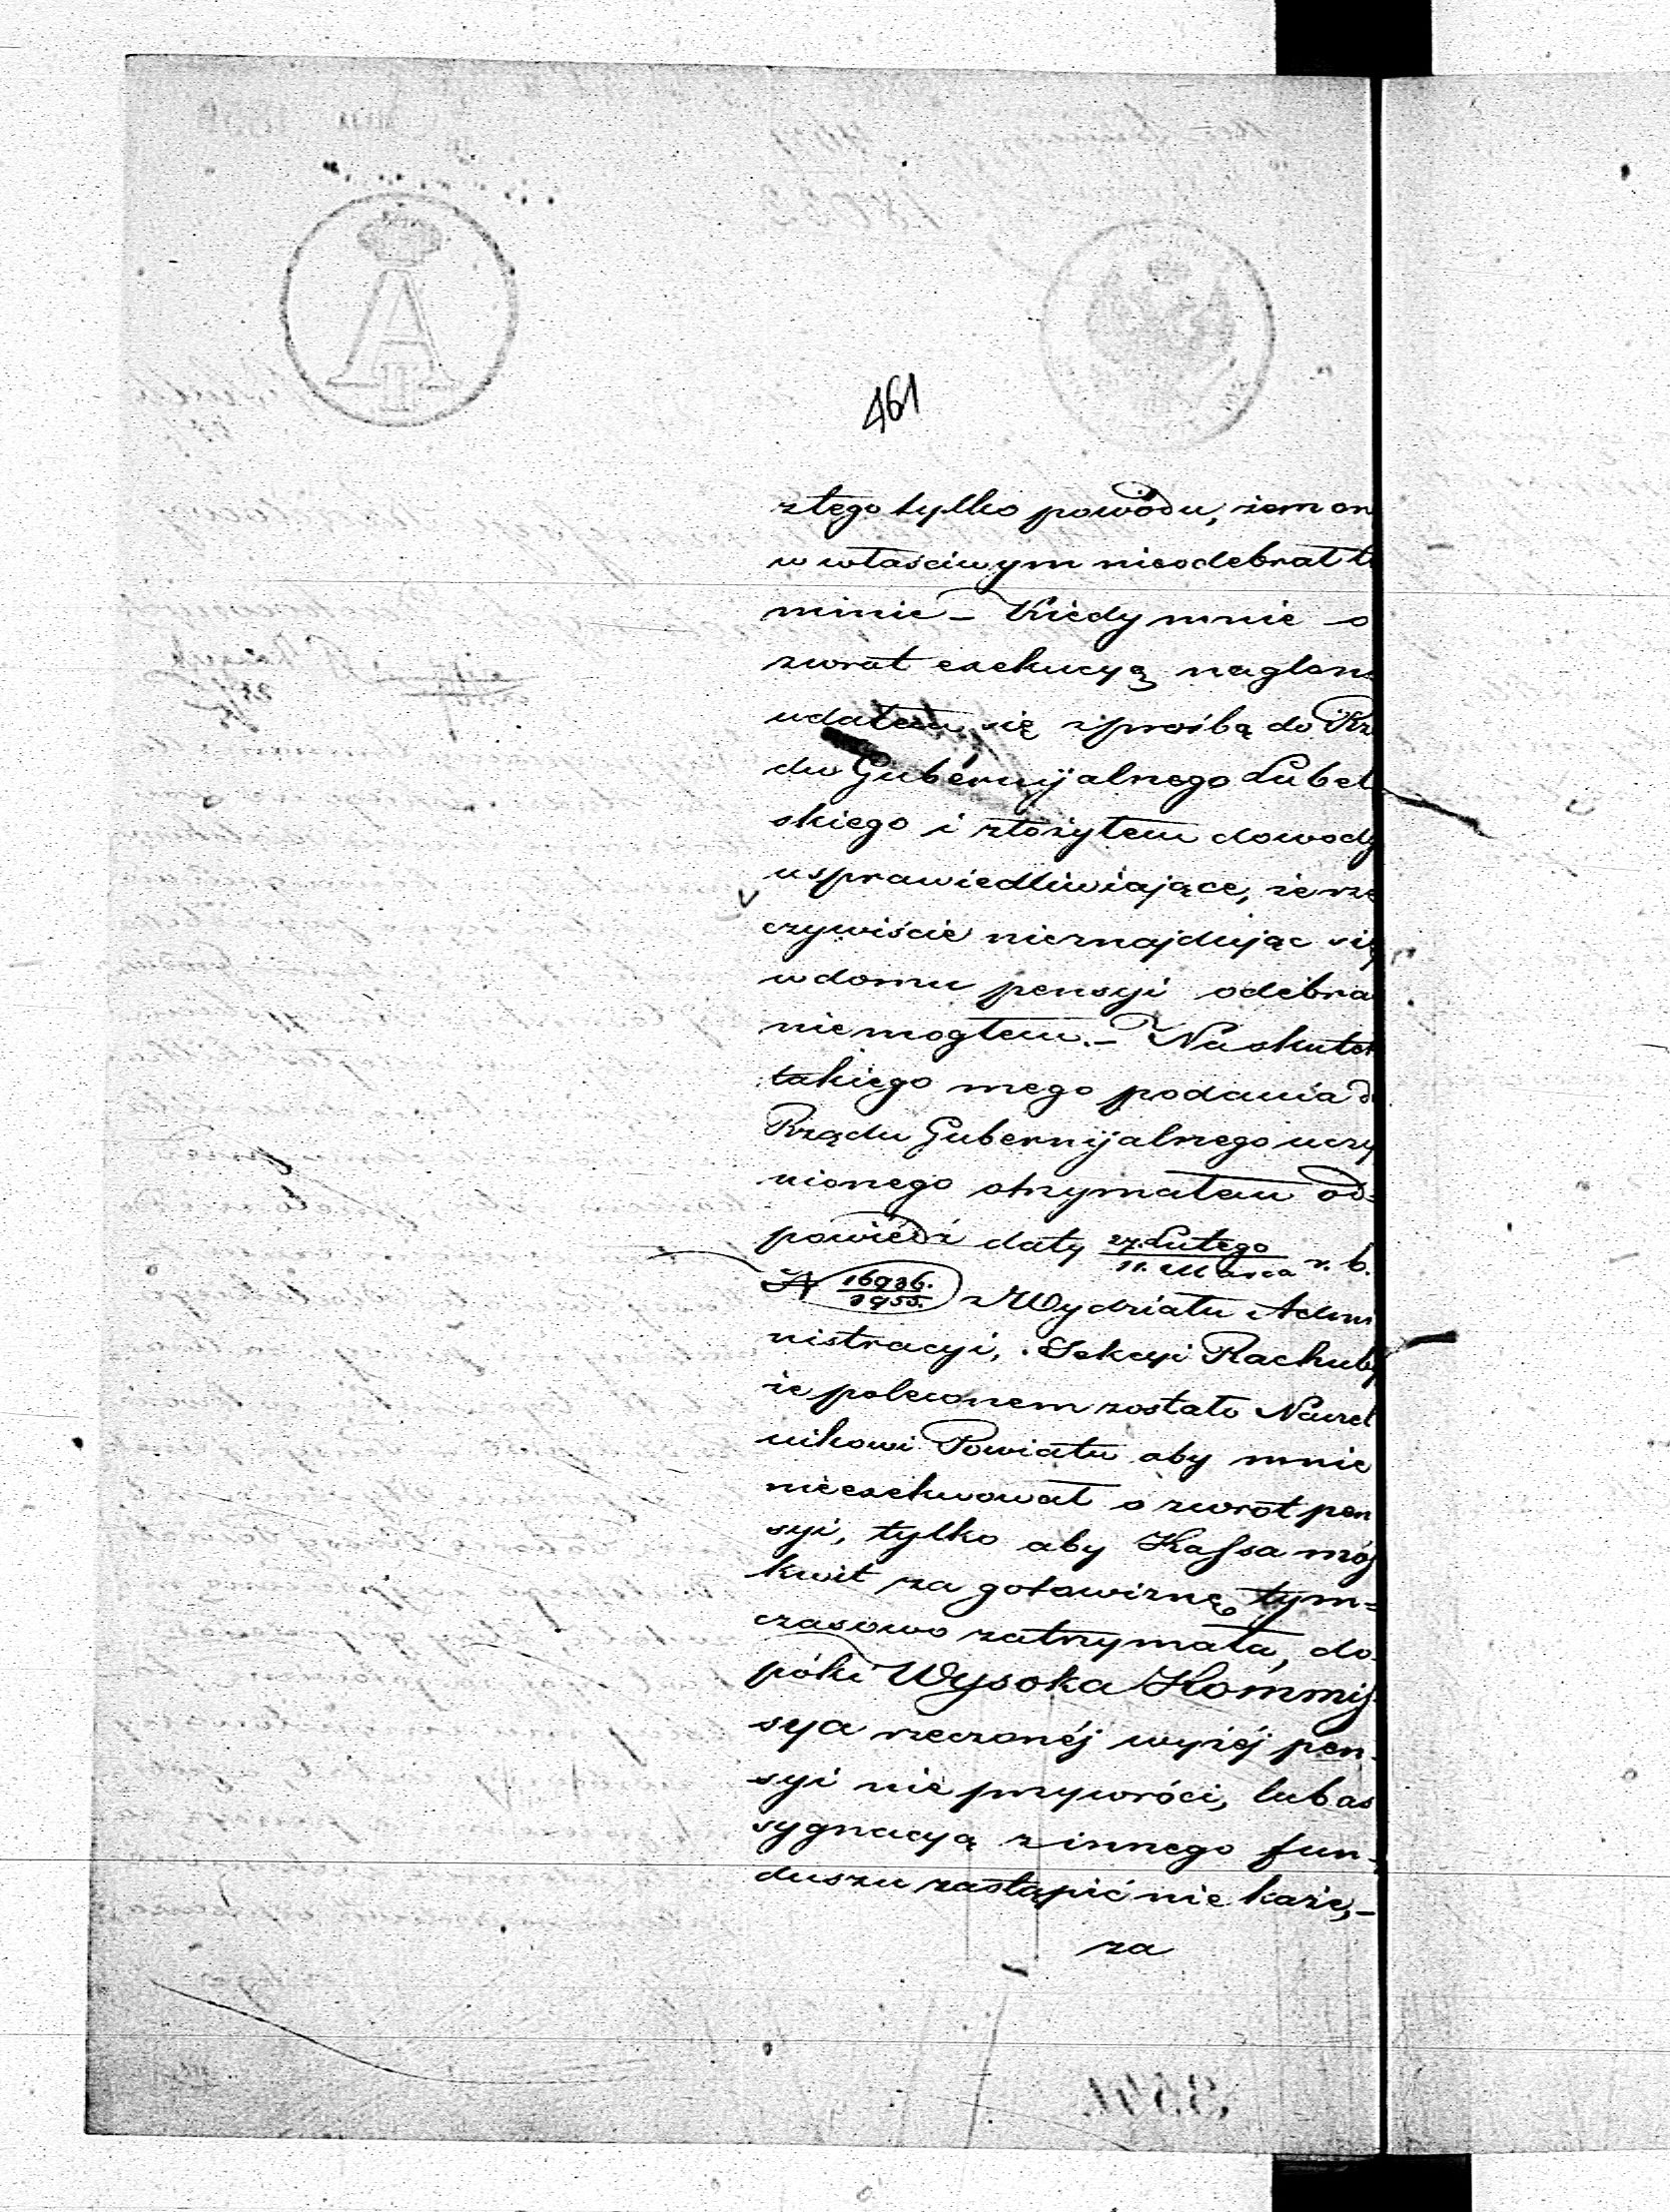 461
z tego tylko powodu, żem on
w właściwym nieodebrał te
minie – Kiedy mnie o
zwrot exekucyą naglon
udałem się z prośbą do Rz
du Gubernijalnego Lubel
skiego i złożyłem dowody
usprawiedliwiające, że rze
czywiście nieznajdując się
w domu pensyi odebra
niemogłem. – Na skutek
takiego mego podania d
Rządu Gubernijalnego uczy
nionego otrzymałem od=
powiedź daty 27. Lutego / 11. Marca r. b.
N 16936. / 3955. z Wydziału Admi
nistracyi, Sekcyi Rachuby
że poleconem zostało Naczel
nikowi Powiatu aby mnie
nieexekwował o zwrot pen
syi, tylko aby Kassa mój
kwit za gotowiznę tym=
czasowo zatrzymała, do
póki Wysoka Kommis
sya rzeczonéj wyżéj pen-
syi nie przywróci, lub as
sygnacyą z innego fun-
duszu zastąpić nie każe, –
za